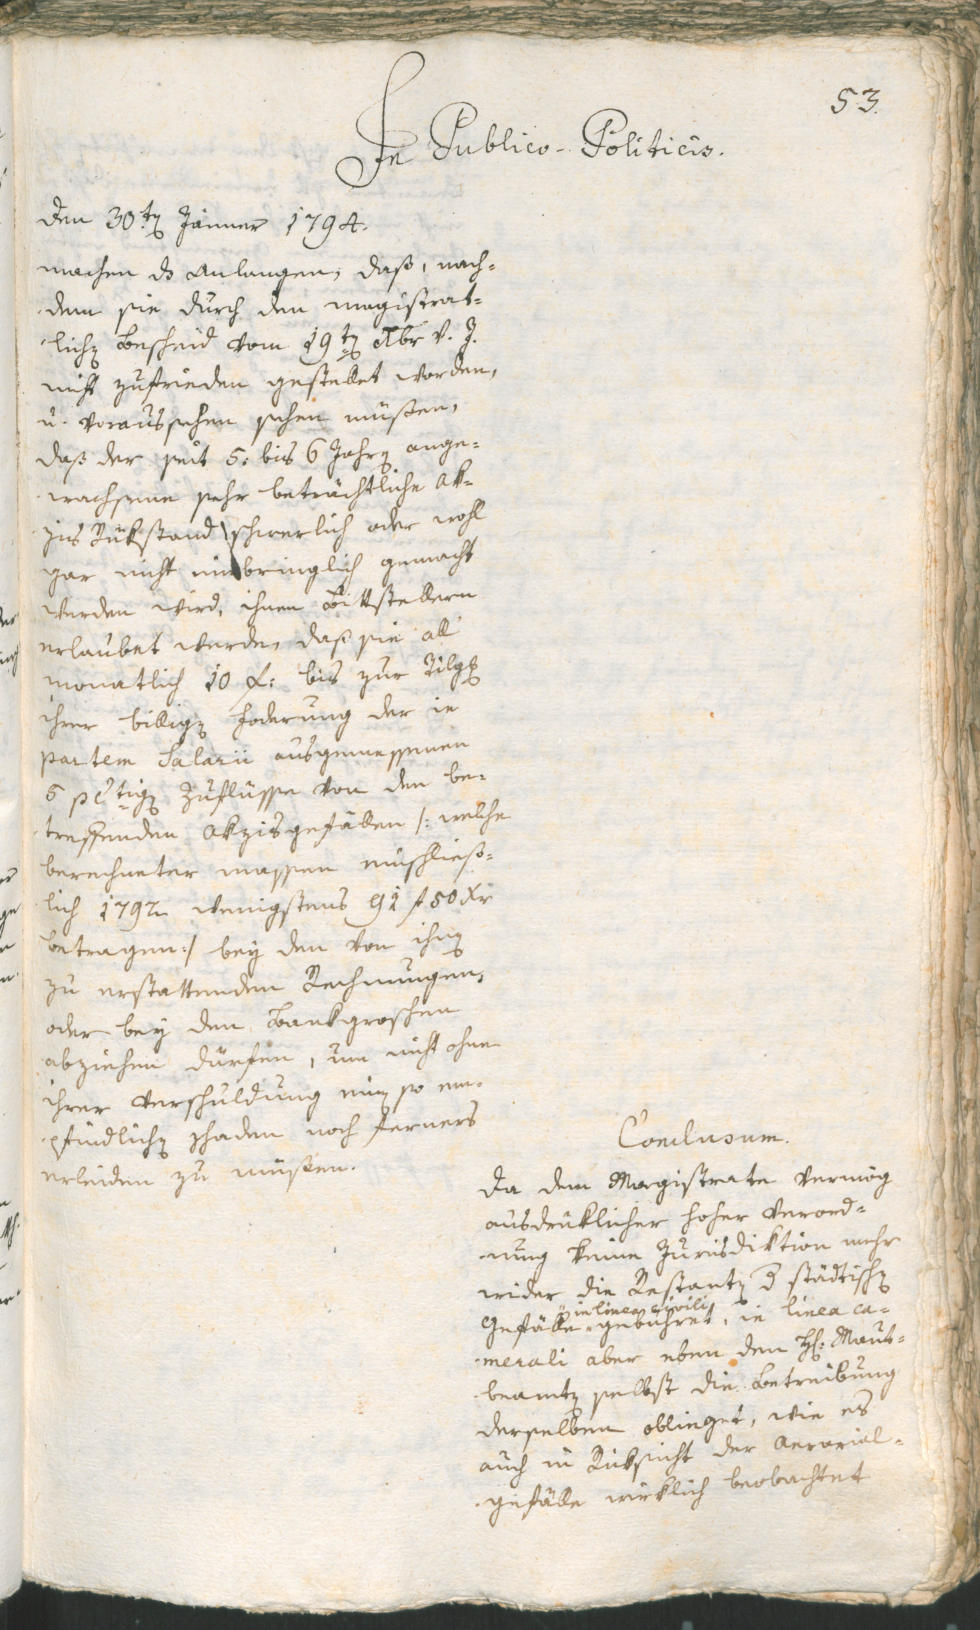 53.
In Publico-Politicis.
Den 30ten Jänner 1794.
machen ds Anlangen, daß, nach-
dem sie durch den magistrat-
lichen Bescheid vom 19ten Xbr v. J.
nicht zufrieden gestellet worden,
u. voraussehen müßen,
daß der seit 5: bis 6 Jahren ange-
wachsene sehr beträchtliche Ak-
zis Rükstand schwerlich oder wohl
gar nicht einbringlich gemacht
werden wird, ihnen Bittstellern
erlaubet werde, daß sie all
monatlich 10 f: bis zur Tilgg
ihrer billigen Foderung der in
partem Salarii ausgemessenen
5 pctigen Zuflüsse von den be-
treffenden Akzisgefällen /: welche
berechneter massen einschließ-
lich 1792 wenigstens 91 f 50 Xr
betragen :/ bey den von ihnen
zu erstattenden Rechnungen,
oder bey den Bankgroschen
abziehen dürfen, um nicht ohne
ihrer Verschuldung einen so em-
pfindlichen Schaden noch ferners
erleiden zu müßen.
Conclusum.
Da dem Magistrate vermög
ausdrüklicher hoher Verord-
nung keine Jurisdiktion mehr
wider die Restanten d städtischen
Gefälle in linea civili gebühret, in linea ca-
merali aber eben den H: Maut-
beamten selbst die Betreibung
derselben oblieget, wie es
auch in Rüksicht der Aerarial-
gefälle wirklich beobachtet